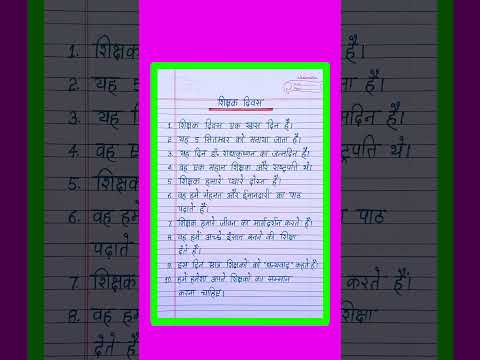 शिक्षक दिवस
1. शिक्षक दिवस एक खास दिन है।
2. यह 5 सितम्बर को मनाया जाता है।
3. यह दिन डॉ. राधाकृष्णन का जन्मदिन है।
4. वह एक महान शिक्षक और राष्ट्रपति थे।
5. शिक्षक हमारे प्यारे दोस्त हैं।
6. वह हमें मेहनत और ईमानदारी का पाठ
पढ़ाते हैं।
7. शिक्षक हमारे जीवन का मार्गदर्शन करते हैं।
8. वह हमें अच्छे इंसान बनने की शिक्षा
देते हैं।
9. इस दिन छात्र शिक्षकों को "धन्यवाद" कहते हैं।
10. हमें हमेशा अपने शिक्षकों का सम्मान
करना चाहिए।